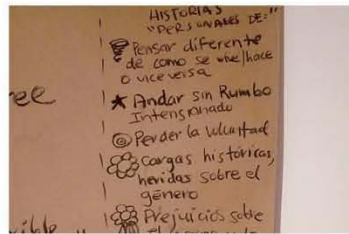 HISTORIAS
"PERSONALES DE:"
Pensar diferente
de como se vive/hace
o viceversa
ee
Andar sin Rumbo
Intensionado
Perder la voluntad
Cargas históricas,
heridas sobre el
género
Prejuicios sobre